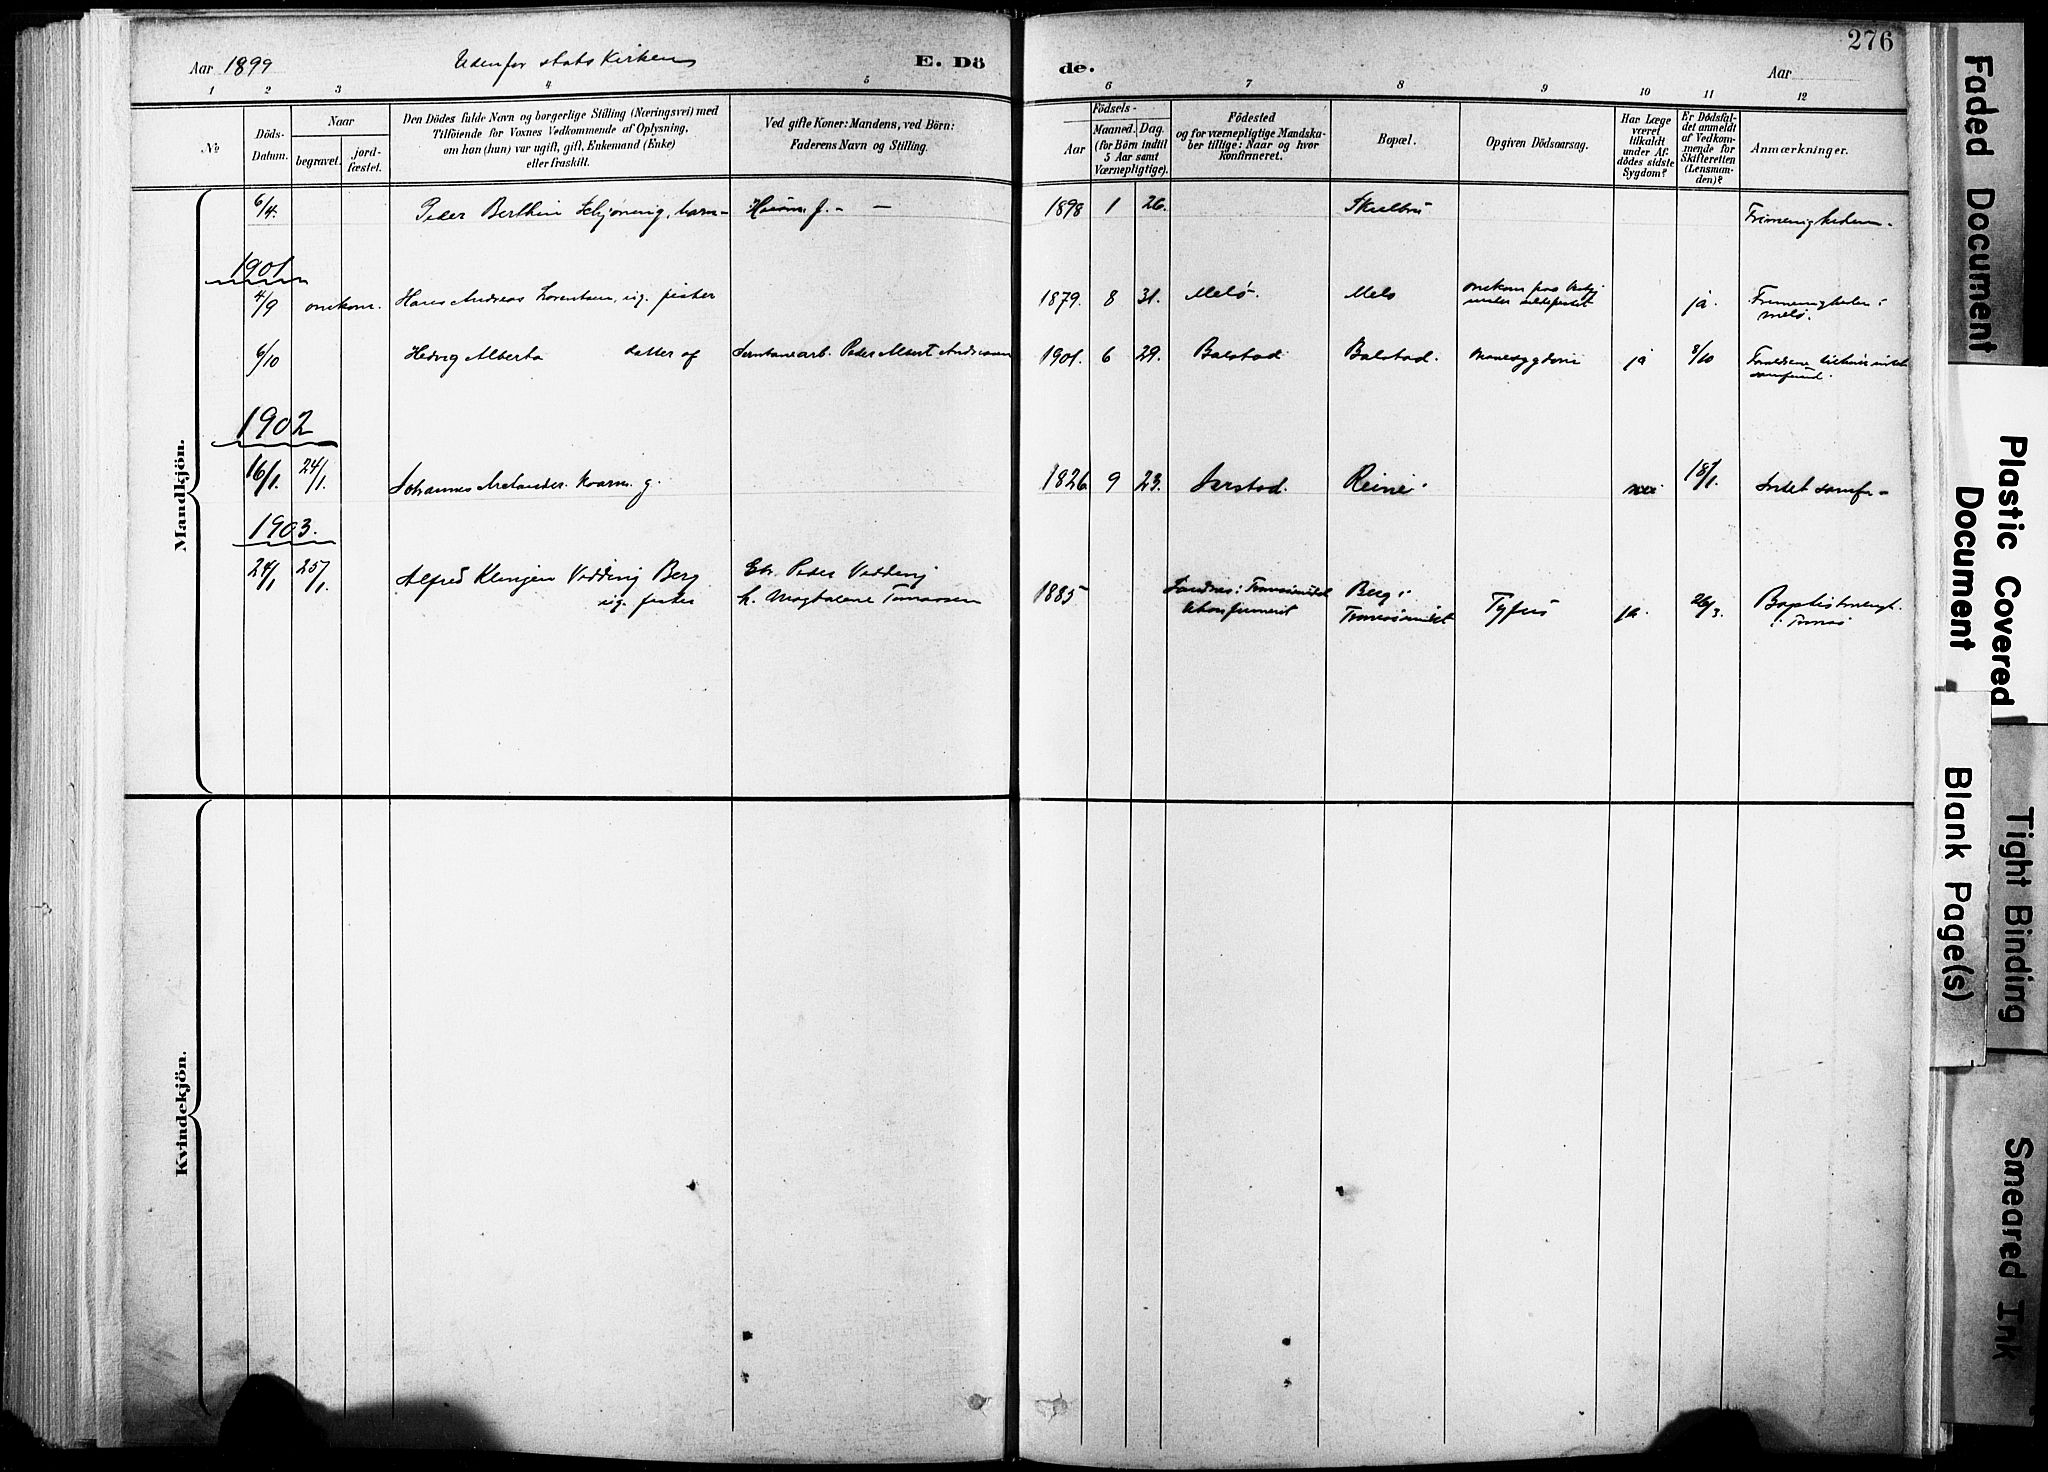 276
Aar 1899 Udenfor statskirken E. Dö de. Aar
1 2 3 4 5 6 7 8 9 10 11 12
№
Döds-
Datum.
Naar
begravet.
jord-
fæstet.
Den Dödes fulde Navn og borgerlige Stilling (Næringsvei) med
Tilföiende for Voxnes Vedkommende af Oplysning,
om han (hun) var ugift, gift, Enkemand (Enke)
eller fraskilt.
Ved gifte Koner: Mandens, ved Börn:
Faderens Navn og Stilling.
Födsels-
Aar
Maaned. Dag.
(for Börn indtil
5 Aar samt
Værnepligtige).
Födested
og for værnepligtige Mandska-
ber tillige: Naar og hvor
konfirmeret.
Bopæl.
Opgiven Dödsaarsag.
Har Læge
været
tilkaldt
under Af-
dödes sidste
Sygdom?
Er Dödsfal-
det anmeldt
af Vedkom-
mende for
Skifteretten
(Lensman-
den)?
Anmærkninger.
Mandkjön.
6/4. Peder Berthin Schjöning, barn- 1898 1 26. Frimenigheden-
1901
4/9 omkom. Hans Andreas Lorentsen, ug. fisker 1879. 8 31. Melö. Melö ja. Frimenigheden i
Melö.
6/10 Hedvig Alberta datter af Peder Albert Andreassen 1901. 6 29. Balstad Balstad. ja 8/10
1902
16/1. 24/1. Johannes g. 1826 9 23. Reine nei 18/1.
1903.
24/1 25/1. Alfred Vedding Berg Peder Vedding
ug. fisker h. Magdalene
1885 Berg i Tyfus ja. 26/3.
Kvindekjön.
Faded Document
Plastic Covered
Document
Blank Page(s)
Tight Binding
Smeared Ink